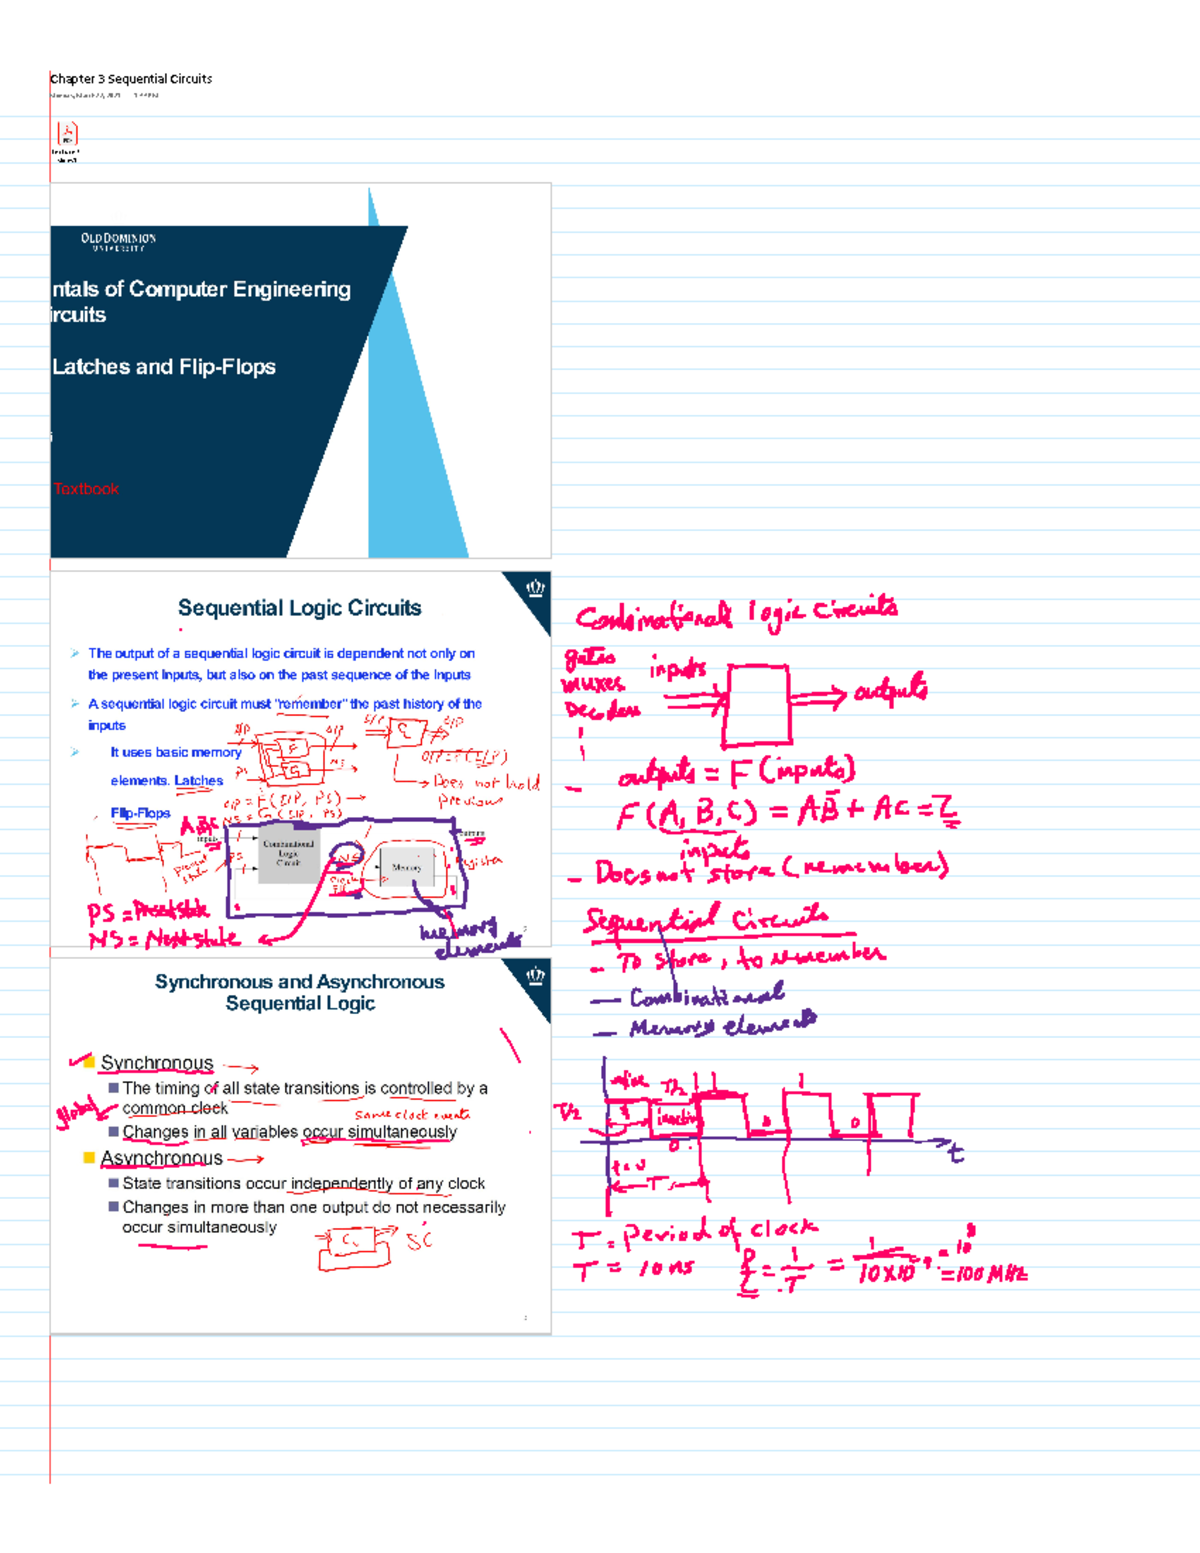 Chapter 3 Sequential Circuits
OLD DOMINION
UNIVERSITY
ntals of Computer Engineering
ircuits
Latches and Flip-Flops
Textbook
Sequential Logic Circuits
The output of a sequential logic circuit is dependent not only on
the present inputs, but also on the past sequence of the inputs
A sequential logic circuit must "remember" the past history of the
inputs
It uses basic memory
elements. Latches
Flip-Flops
I/P
O/P
PS
NS
F
G
I/P
C
O/P
O/P = F(I/P)
Does not hold
previous
O/P = F(I/P, PS)
NS = G(I/P, PS)
A,B,C
inputs
PS
Combinational
Logic
Circuit
NS
Memory
Register
Present
state
PS = Present state
NS = Next state
memory
elements
Combinational logic Circuits
gates
muxes
Decoders
inputs
outputs
- outputs = F (inputs)
F (A, B, C) = AB̄ + AC = Z
inputs
- Does not store (remember)
Sequential Circuits
- To store, to remember
- Combinational
- Memory elements
Synchronous and Asynchronous
Sequential Logic
Synchronous
The timing of all state transitions is controlled by a
common clock
global
same clock events
Changes in all variables occur simultaneously
Asynchronous
State transitions occur independently of any clock
Changes in more than one output do not necessarily
occur simultaneously
C
SC
T/2
T/2
1
1
0
0
0
t
T
T = Period of clock
T = 10 ns
f = 1/T = 1/10x10⁻⁹ = 10⁸
= 100 MHz